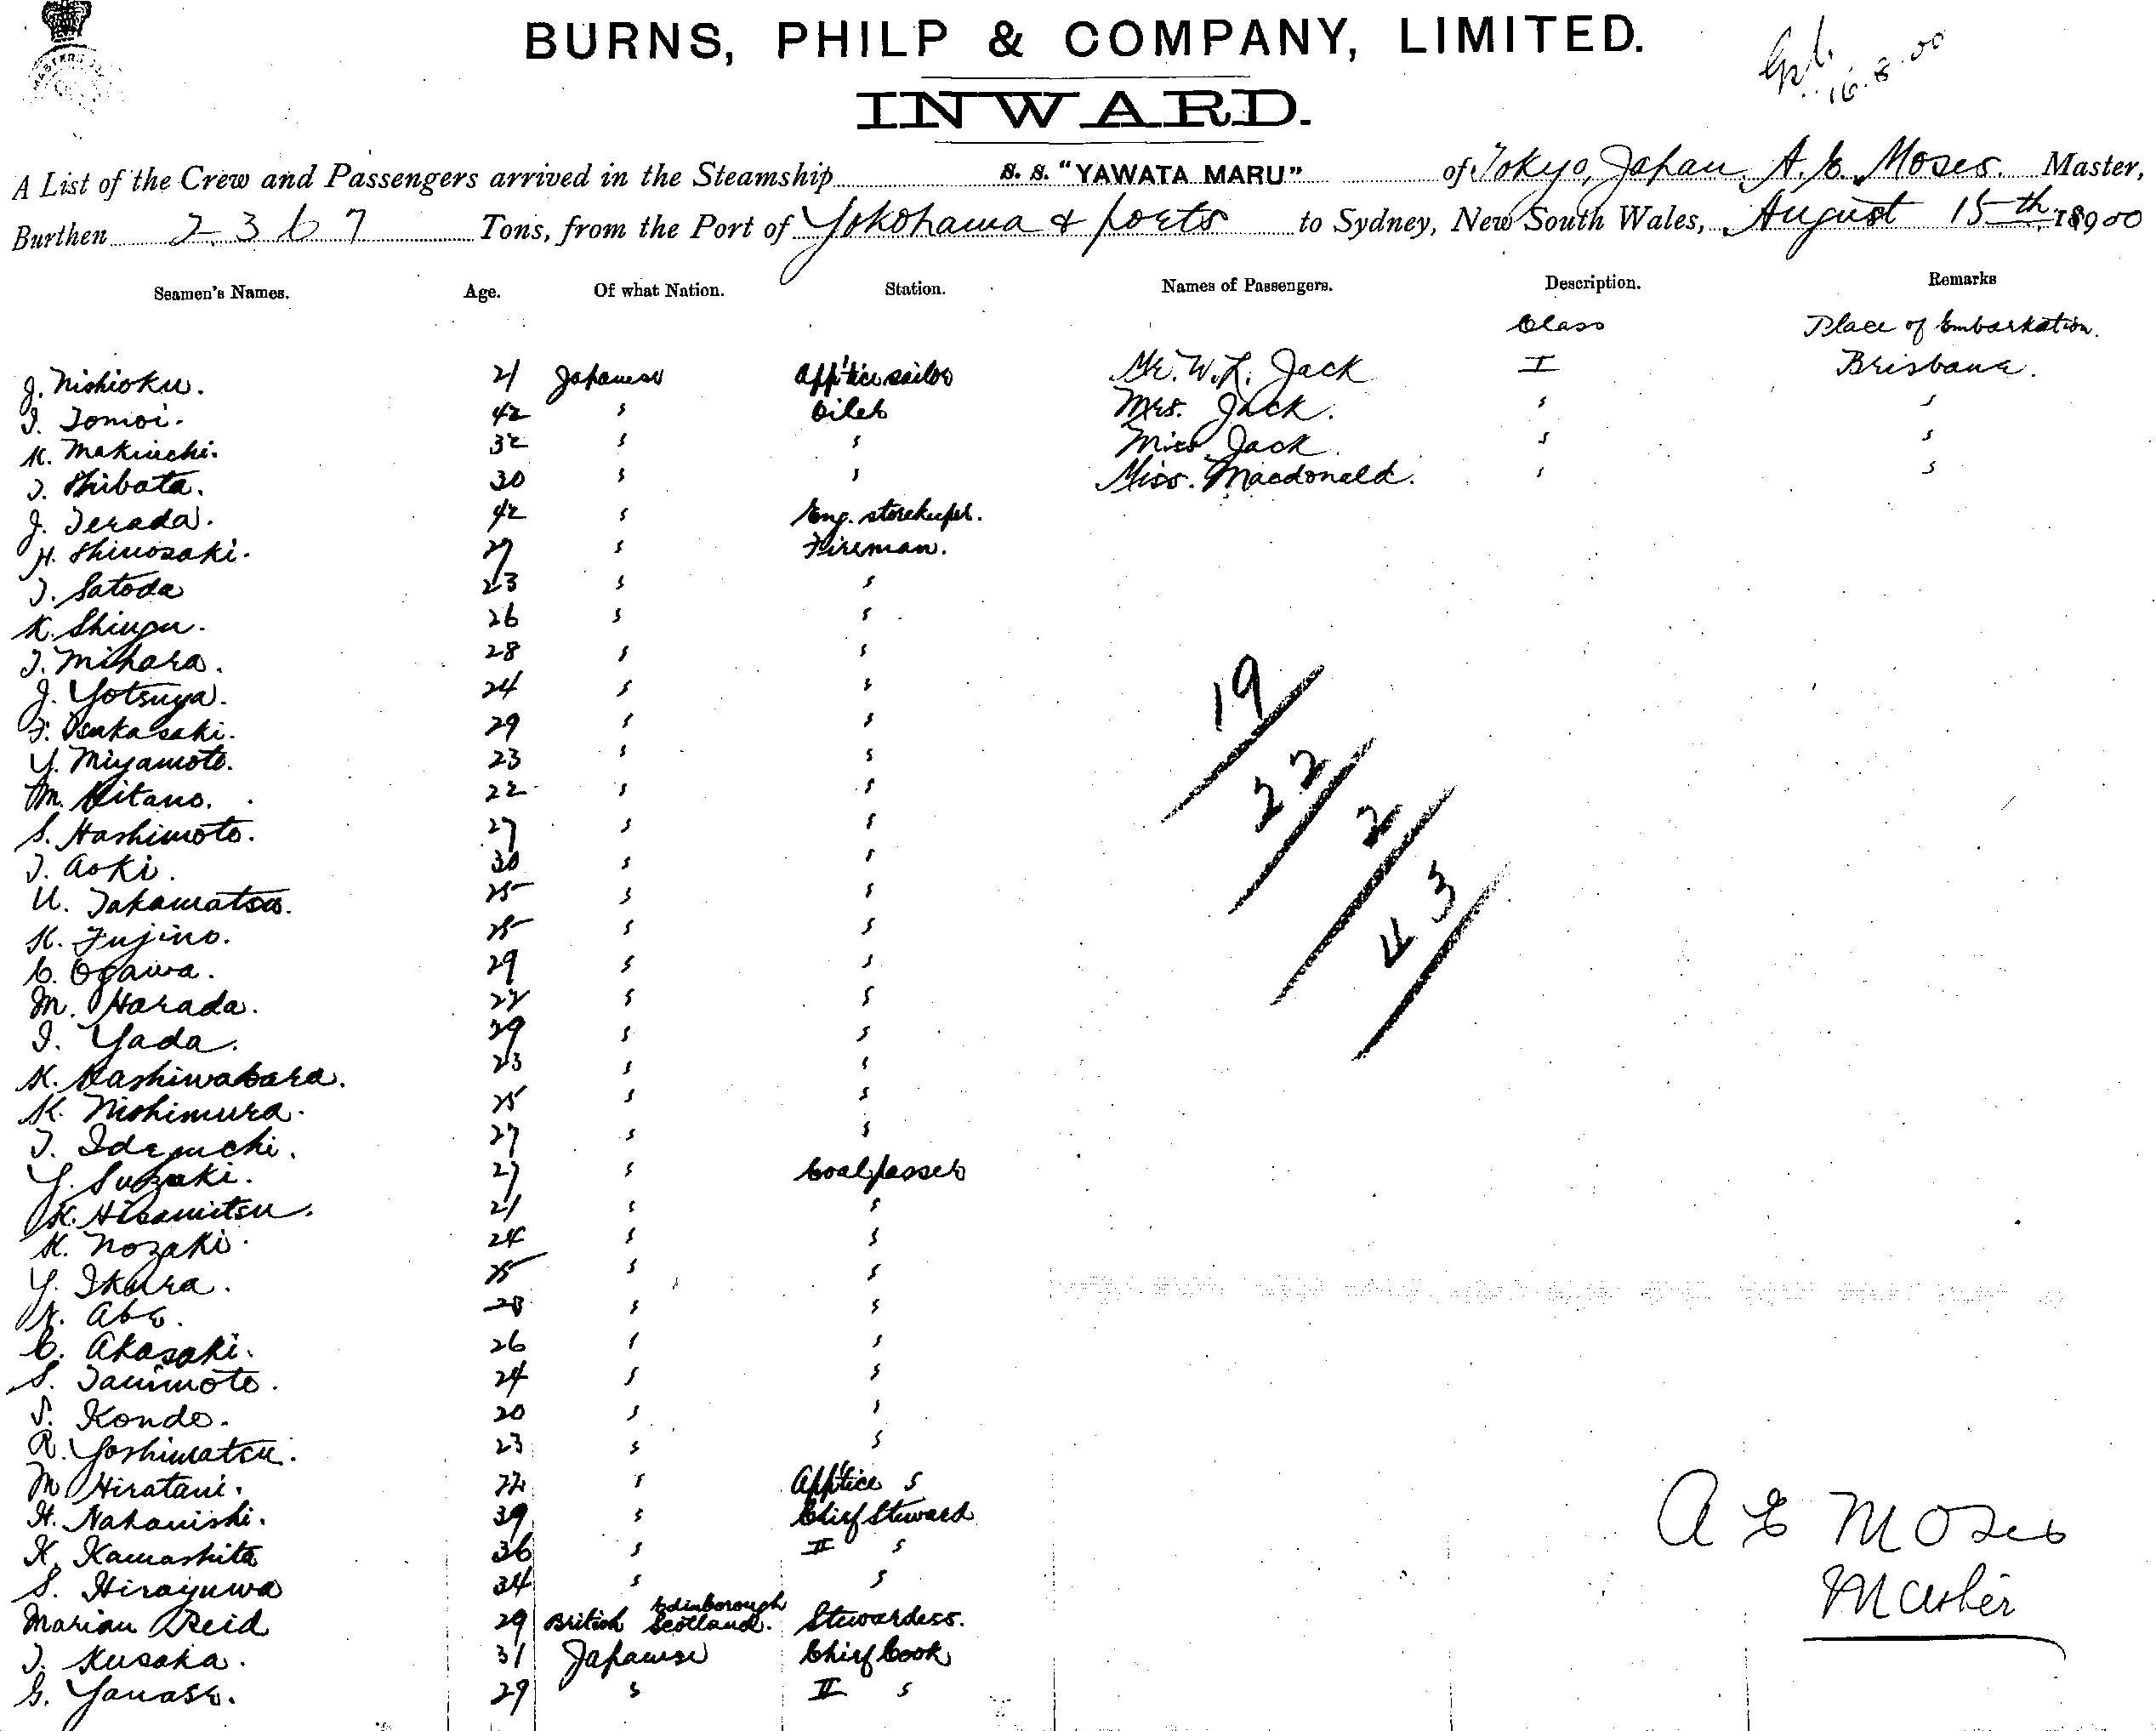 BURNS, PHILP & COMPANY, LIMITED.
16.8.00
INWARD.
A List of the Crew and Passengers arrived in the Steamship S. S. "YAWATA MARU" of Tokyo, Japan A. E. Moses. Master,
Burthen 2367 Tons, from the Port of Yokohama & ports to Sydney, New South Wales, August 15th 1900
Seamen's Names. Age. Of what Nation. Station. Names of Passengers. Description. Remarks
Class Place of Embarkation.
J. Nishioku. 21 Japanese App'tice sailor Mr. W. L. Jack I Brisbane.
I. Tomoi. 42 " Oiler Mrs. Jack. " "
K. Makiuchi. 32 " " Miss Jack. " "
T. Shibata. 30 " " Miss. Macdonald. " "
J. Terada. 42 " Eng. storekeeper.
H. Shinosaki. 27 " Fireman.
T. Satoda 23 " "
K. Shingu. 26 " "
T. Mihara. 28 " "
J. Yotsuya. 24 " "
F. Osakasaki. 29 " "
Y. Miyamoto. 23 " "
M. Kitano. 22 " "
S. Hashimoto. 27 " "
T. Aoki. 30 " "
U. Takamatsu. 25 " "
K. Fujino. 25 " "
C. Ogawa. 29 " "
M. Harada. 22 " "
I. Yada. 29 " "
K. Kashiwabara. 23 " "
K. Nishimura. 25 " "
T. Ideguchi. 27 " "
Y. Suzuki. 27 " Coalpasser
K. Hisamitsu. 21 " "
K. Nozaki. 24 " "
Y. Ikura. 25 " "
N. Abe. 28 " "
C. Akasaki. 26 " "
S. Tanimoto. 24 " "
S. Kondo. 20 " "
R. Yoshimatsu. 23 " "
M. Hiratani. 22 " App'tice "
H. Nakanishi. 39 " Chief Steward
K. Kawashita 36 " II "
S. Hirayuwa 34 " "
Marian Reid 29 British Edinborough Scotland. Stewardess.
T. Kusaka. 31 Japanese Chief Cook
G. Yanase. 29 " II "
19
22
2
43
A E Moses
Master